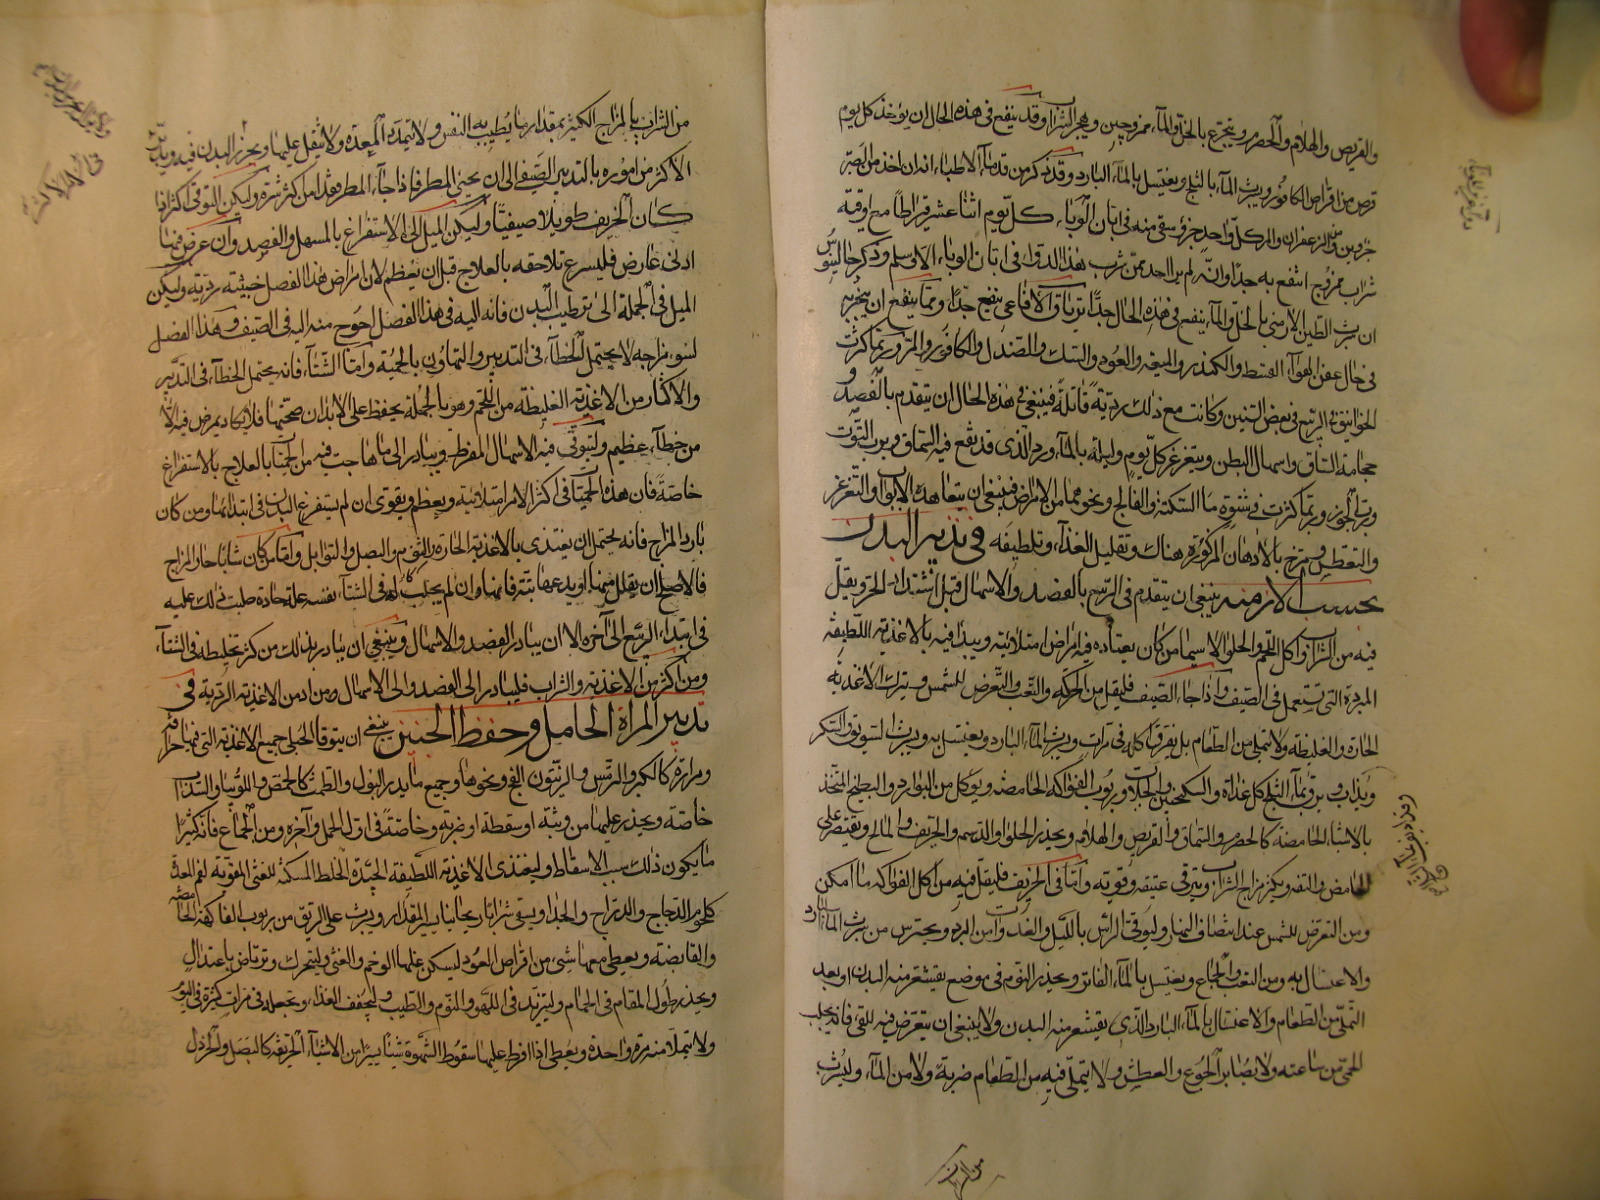 والقريص والهلام والحصرم ويتجرع بالخل والماء ممزوجين ويهجر الشراب وقد ينفع في هذه الحال ان يؤخذ كل يوم
قرص من اقراص الكافور ويشرب الماء بالثلج ويغتسل بالماء البارد وقد ذكر من قدماء الاطباء انه ان اخذ من الصبر
جزوين ومن الزعفران والمر كل واحد جزؤ سقي منه في ابان الوباء كل يوم اثنا عشر قيراطا مع اوقية
شراب ممزوج انتفع به جدا وانه لم ير احد ممن شرب هذا الدواء في ابان الوباء الا وسلم وذكر جالينوس
ان شرب الطين الارمني بالخل والماء ينفع في هذه الحال جدا وترياق الافاعي ينفع جدا ومما ينفع ان يتبخر به
في حال عفن الهواء القسط والكندر والميعة والعود والسك والصندل والكافور والمر وربما كثرت
الخوانيق في الربيع في بعض السنين وكانت مع ذلك ردية قاتلة فينبغي في هذه الحال ان يتقدم بالفصد و
حجامة الساق واسهال البطن ويتغرغر كل يوم وليلة بالماء ورد الذي قد نقع فيه السماق وبرب التوت
وبرب الجوز وربما كثرت في شتوة ما السكتة والفالج ونحوهما من الامراض فينبغي ان يتعاهد الايارج والتغرغر
والتعطس ويمرخ بالادهان المذكورة هناك وتقليل الغذاء وتلطيفه في تدبير البدن
بحسب الازمنة ينبغي ان يتقدم في الربيع بالفصد والاسهال قبل اشتداد الحر ويقل
فيه من الشراب واكل اللحم والحلوا لا سيما من كان يعتاده فيه امراض امتلائية ويبدا فيه بالاغذية اللطيفة
المبردة التي تستعمل في الصيف واذا جاء الصيف فليقل من الحركة والتعب والتعرض للشمس ويترك الاغذية
الحارة والغليظة ولا يتملى من الطعام بل يفرق اكله في مرات ويشرب الماء البارد ويغتسل به ويشرب السويق والسكر
ويشرب ماء الثلج كل غداة والسكنجبين والجلاب وربوب الفواكه الحامضة ويؤكل من البوارد والبطيخ المتخذ
بالاشياء الحامضة كالحصرم والسماق والقريص والهلام ويحذر الحلوا والدسم والحريف والمالح ويقتصر على
الحامض والتفه ويكثر مزاج الشراب ويترقى عتيقه وقويه واما في الخريف فليقل فيه من اكل الفواكه ما امكن
ومن التعرض للشمس عند انتصاف النهار وليوقى الراس بالليل والغدوات من البرد ويحترس من شرب الماء البارد
والاغتسال به ومن التعب والجماع ويغتسل بالماء الفاتر ويحذر النوم في موضع يقشعر منه البدن او بعد
التملي من الطعام والاغتسال بالماء البارد الذي يقشعر منه البدن ولا ينبغي ان يتعرض فيه للقي فانه يجلب
الحمى من ساعته ولا يصابر الجوع والعطش ولا يتملى فيه من الطعام ضربة ولا من الماء وليشرب
من الشراب
من الشراب بالمزاج الكثير بمقدار ما يطيب به النفس ولا تمتد المعدة ولا يثقل عليها ويحرز البدن فيه
الاكثر من اموره بالتدبير الصيفي الى ان يجئ المطر فاذا جاء المطر فقد امن كثر شره وليكن التوقي اكثر اذا
كان الخريف طويلا صيفيا وليكن الميل الى الاستفراغ بالمسهل والفصد وان عرض فيها
ادنى عارض فليسرع تلاحقه بالعلاج قبل ان يعظم لان امراض هذا الفصل خبيثة ردية وليكن
الميل في الجملة الى ترطيب البدن فانه اليه في هذا الفصل احوج منه اليه في الصيف وهذا الفصل
لسوء مزاجه لا يحتمل الخطاء في التدبير والتهاون بالحمية واما الشتاء فانه يحتمل الخطاء في التدبير
والاكثار من الاغذية الغليظة من اللحم وهو بالجملة يحفظ على الابدان صحتها فلا يكاد يمرض فيه الا
من خطاء عظيم وليتوقى فيه الاسهال المفرط ويبادر الى ما هاجت فيه من الحميات بالعلاج بالاستفراغ
خاصة فان هذه الحميات في اكثر الامر امتلائية ويعظم ويقوى ان لم يستفرغ البدن في ابتدائها ومن كان
بارد المزاج فانه يحتمل ان يغتذى بالاغذية الحارة والثوم والبصل والتوابل واما من كان شابا حار المزاج
فالاصلح ان يقلل منها او يدعها بتة فانها وان لم يجلب له في الشتاء نفسه علة حادة صلبت ذلك عليه
في ابتداء الربيع الى اخره الا ان يبادر الفصد والاسهال وينبغي ان يبادر بذلك من كثر تخليطه في الشتاء
ومن اكثر من الاغذية والشراب فليبادر الى الفصد والى الاسهال ومن ادمن الاغذية الردية في
تدبير المراة الحامل وحفظ الجنين ينبغي ان يتوقا الحبلى جميع الاغذية التي فيها حرافة
ومرارة كالكبر والترمس والزيتون الفج ونحوها وجميع ما يدر البول والطمث كالحمص واللوبيا والسذاب
خاصة ويحذر عليها من وثبة او سقطة او ضربة وخاصة في اول الحمل وآخره ومن الجماع فانه كثيرا
ما يكون ذلك سبب الاسقاط وليغذى الاغذية اللطيفة الجيدة الخلط المسكنة للغثي المقوية لفم المعدة
كلحوم الدجاج والدراج والجداء ويسقى شرابا ريحانيا يسير المقدار ويشرب على الريق من ربوب الفاكهة الحامضة
والقابضة ويعطى معها شيء من اقراص العود ليسكن عليها الوخم والغثي وليتحرك وترتاض باعتدال
ويحذر طول المقام في الحمام وليتزيد في اللهو والنوم والطيب وليخفف الغذاء ويجعله في مرات كثيرة في اليوم
ولا يتملا منه مرة واحدة ويعطى اذا افرط عليها سقوط الشهوة شيئا يسيرا من الاشياء الحريفة كالبصل والخردل